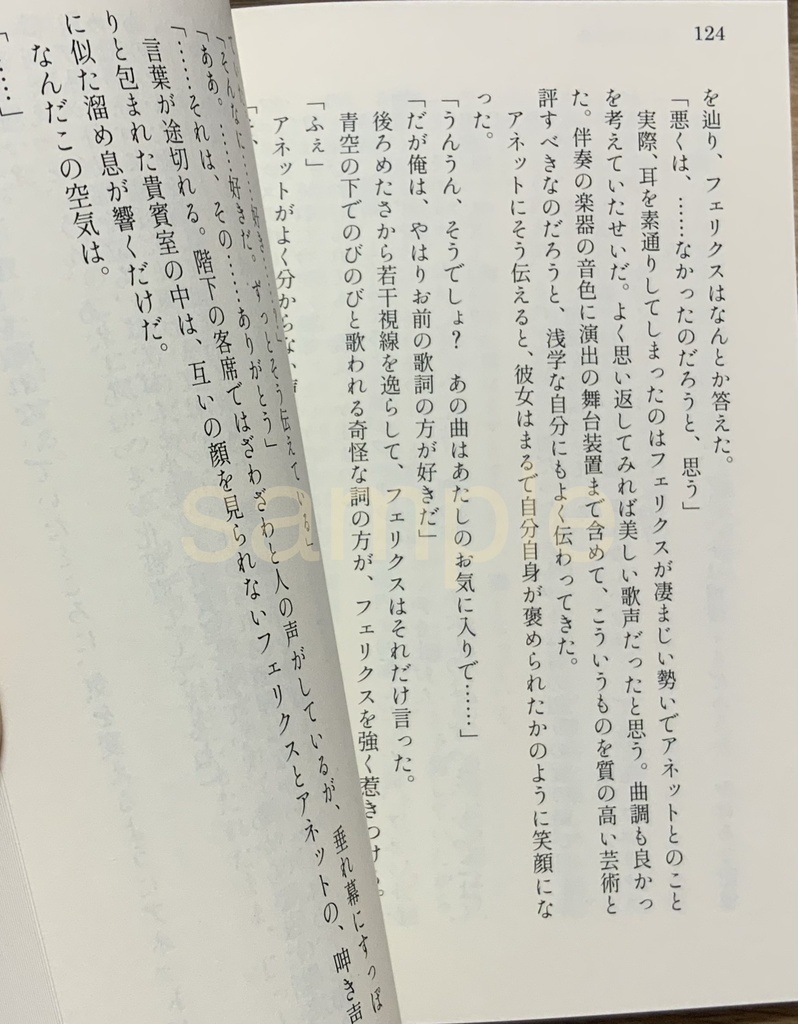 124
を辿り、フェリクスはなんとか答えた。
「悪くは、……なかったのだろうと、思う」
実際、耳を素通りしてしまったのはフェリクスが凄まじい勢いでアネットとのこと
を考えていたせいだ。よく思い返してみれば美しい歌声だったと思う。曲調も良かっ
た。伴奏の楽器の音色に演出の舞台装置まで含めて、こういうものを質の高い芸術と
評すべきなのだろうと、浅学な自分にもよく伝わってきた。
アネットにそう伝えると、彼女はまるで自分自身が褒められたかのように笑顔にな
った。
「うんうん、そうでしょ？　あの曲はあたしのお気に入りで……」
「だが俺は、やはりお前の歌詞の方が好きだ」
後ろめたさから若干視線を逸らして、フェリクスはそれだけ言った。
青空の下でのびのびと歌われる奇怪な詞の方が、フェリクスを強く惹きつけ
「ふぇ」
アネットがよく分からない
「そんなに……好き……？」
「ああ。……好きだ。ずっとそう伝えている」
「……それは、その……ありがとう」
言葉が途切れる。階下の客席ではざわざわと人の声がしているが、垂れ幕にすっぽ
りと包まれた貴賓室の中は、互いの顔を見られないフェリクスとアネットの、呻き声
に似た溜め息が響くだけだ。
なんだこの空気は。
「……」
sample